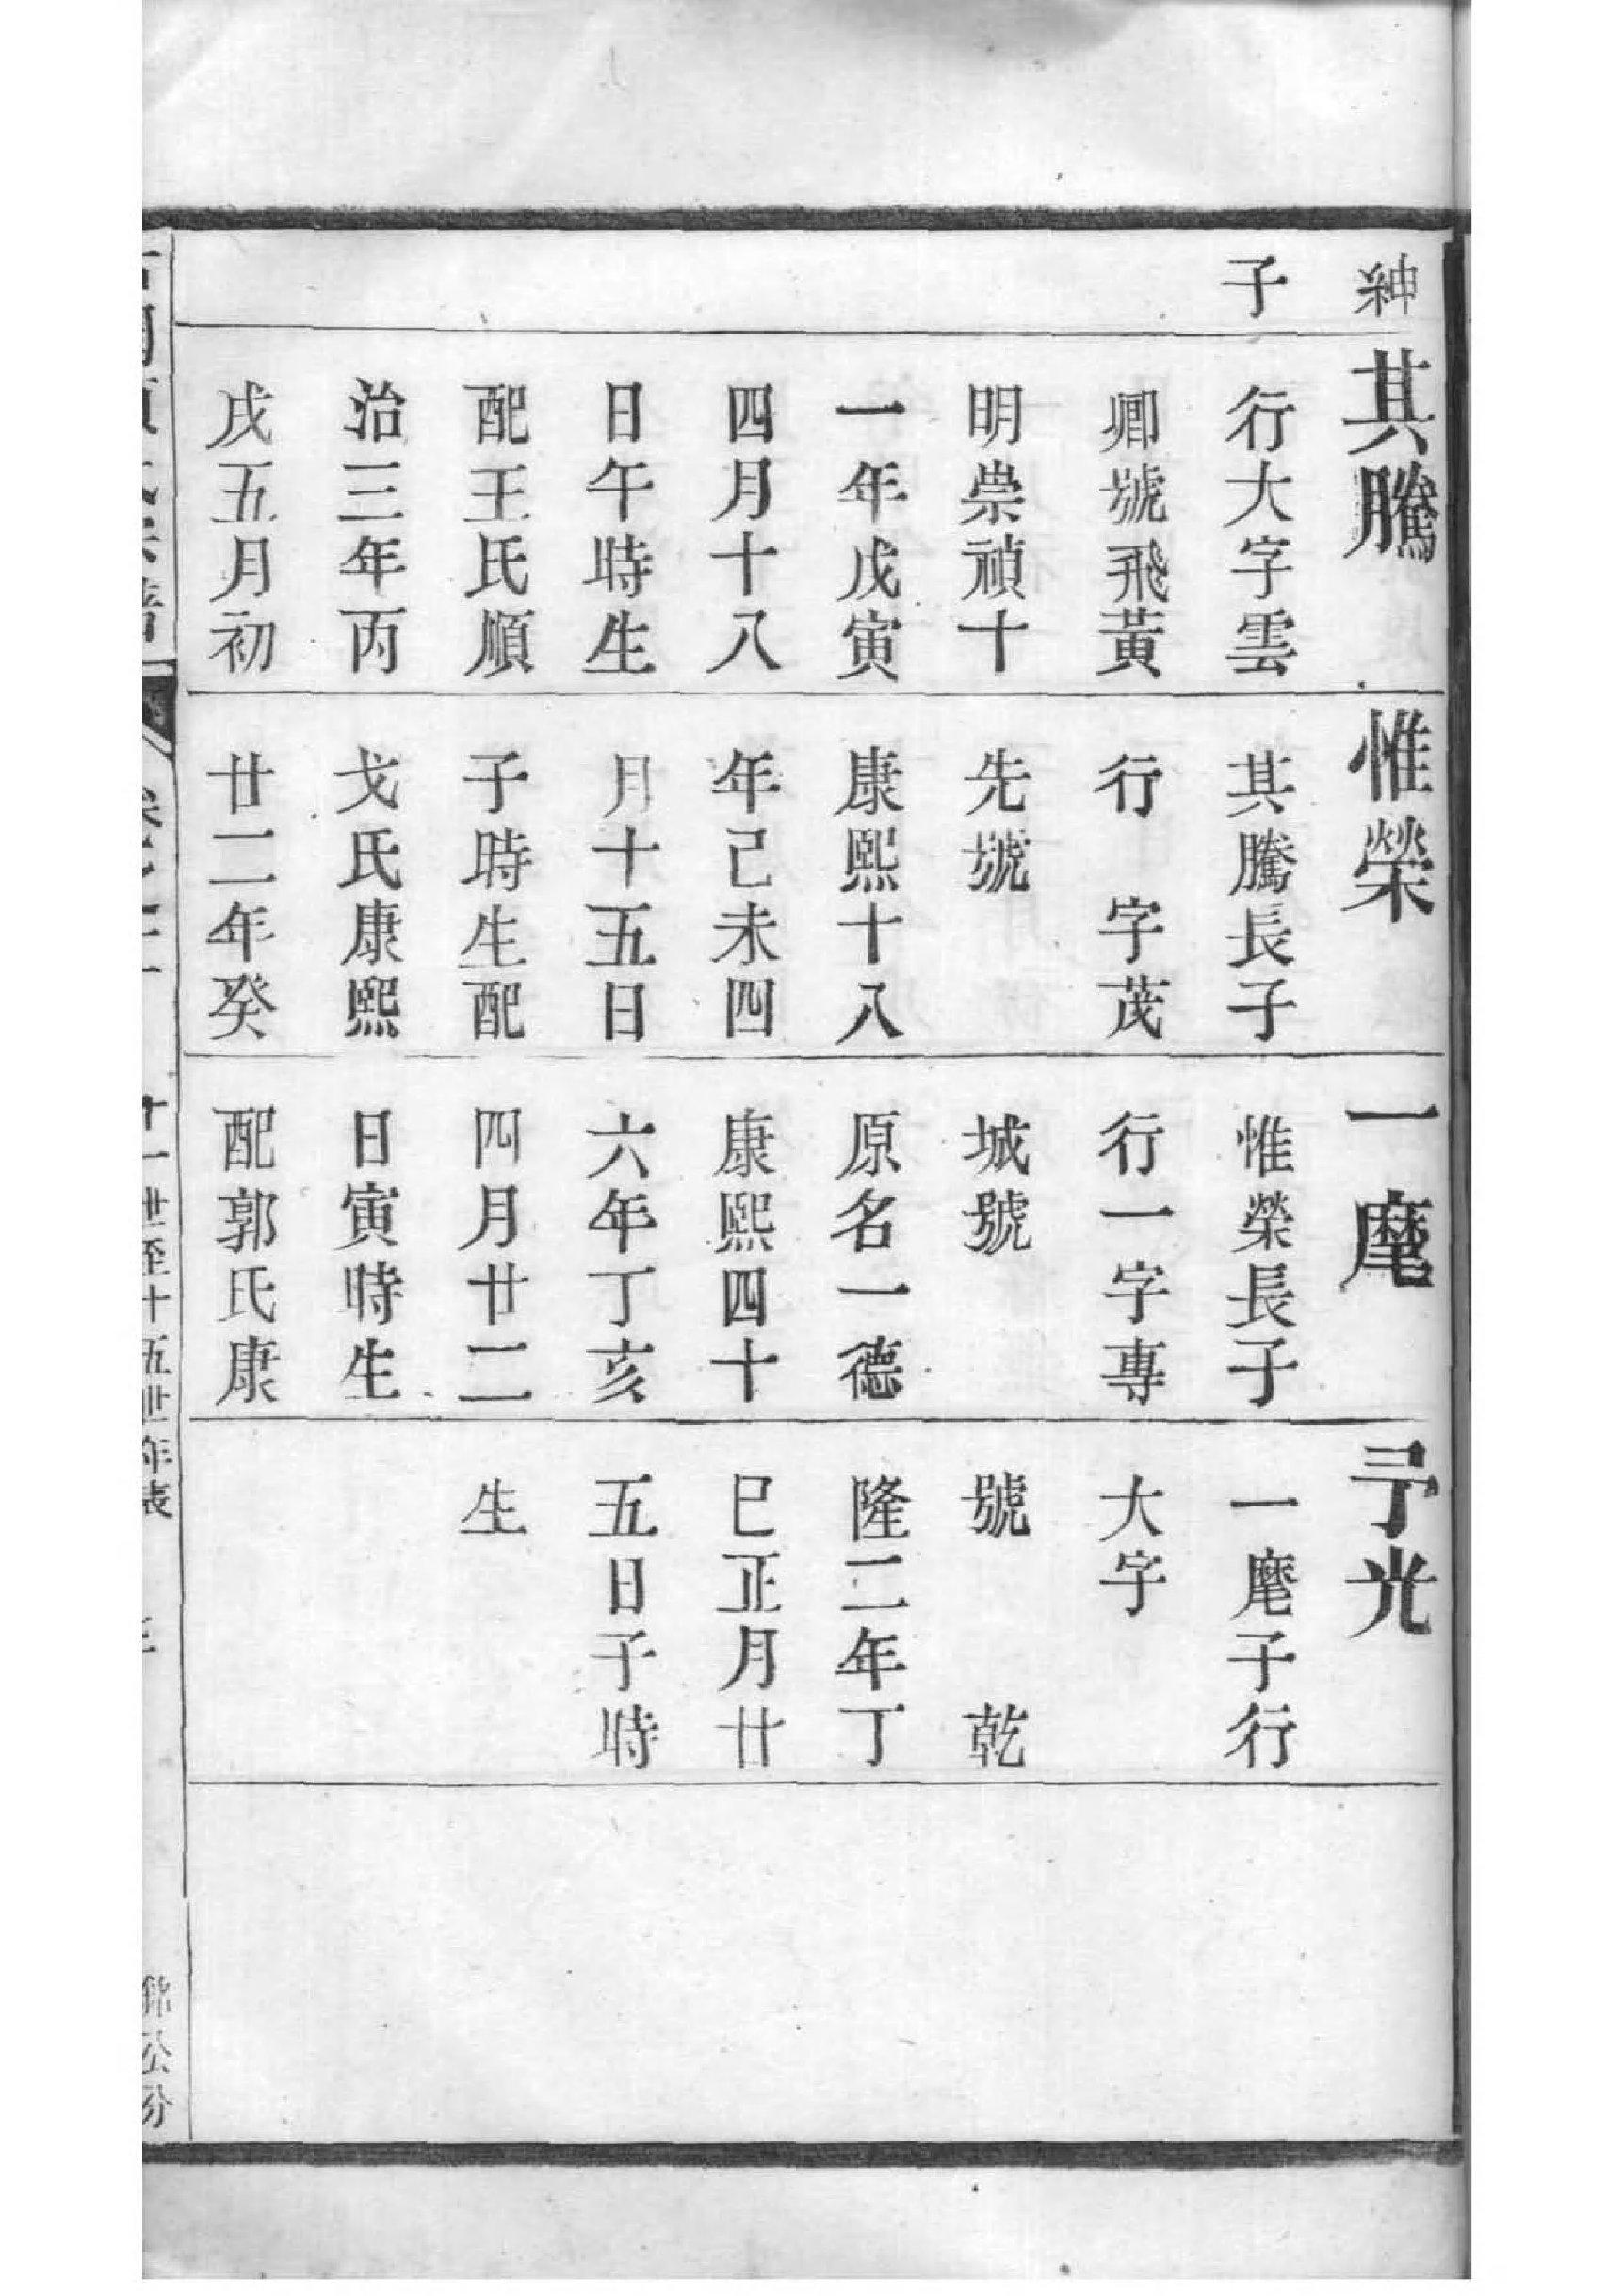 紳
子
其騰
行大字雲
卿號飛黃
明崇禎十
一年戊寅
四月十八
日午時生
配王氏順
治三年丙
戌五月初
惟榮
其騰長子
行 字茂
先號
康熙十八
年己未四
月十五日
子時生配
戈氏康熙
廿二年癸
一麾
惟榮長子
行一字專
城號
原名一德
康熙四十
六年丁亥
四月廿二
日寅時生
配郭氏康
光
一麾子行
大字
號 乾
隆二年丁
巳正月廿
五日子時
生
十一世至十五世年表
公分